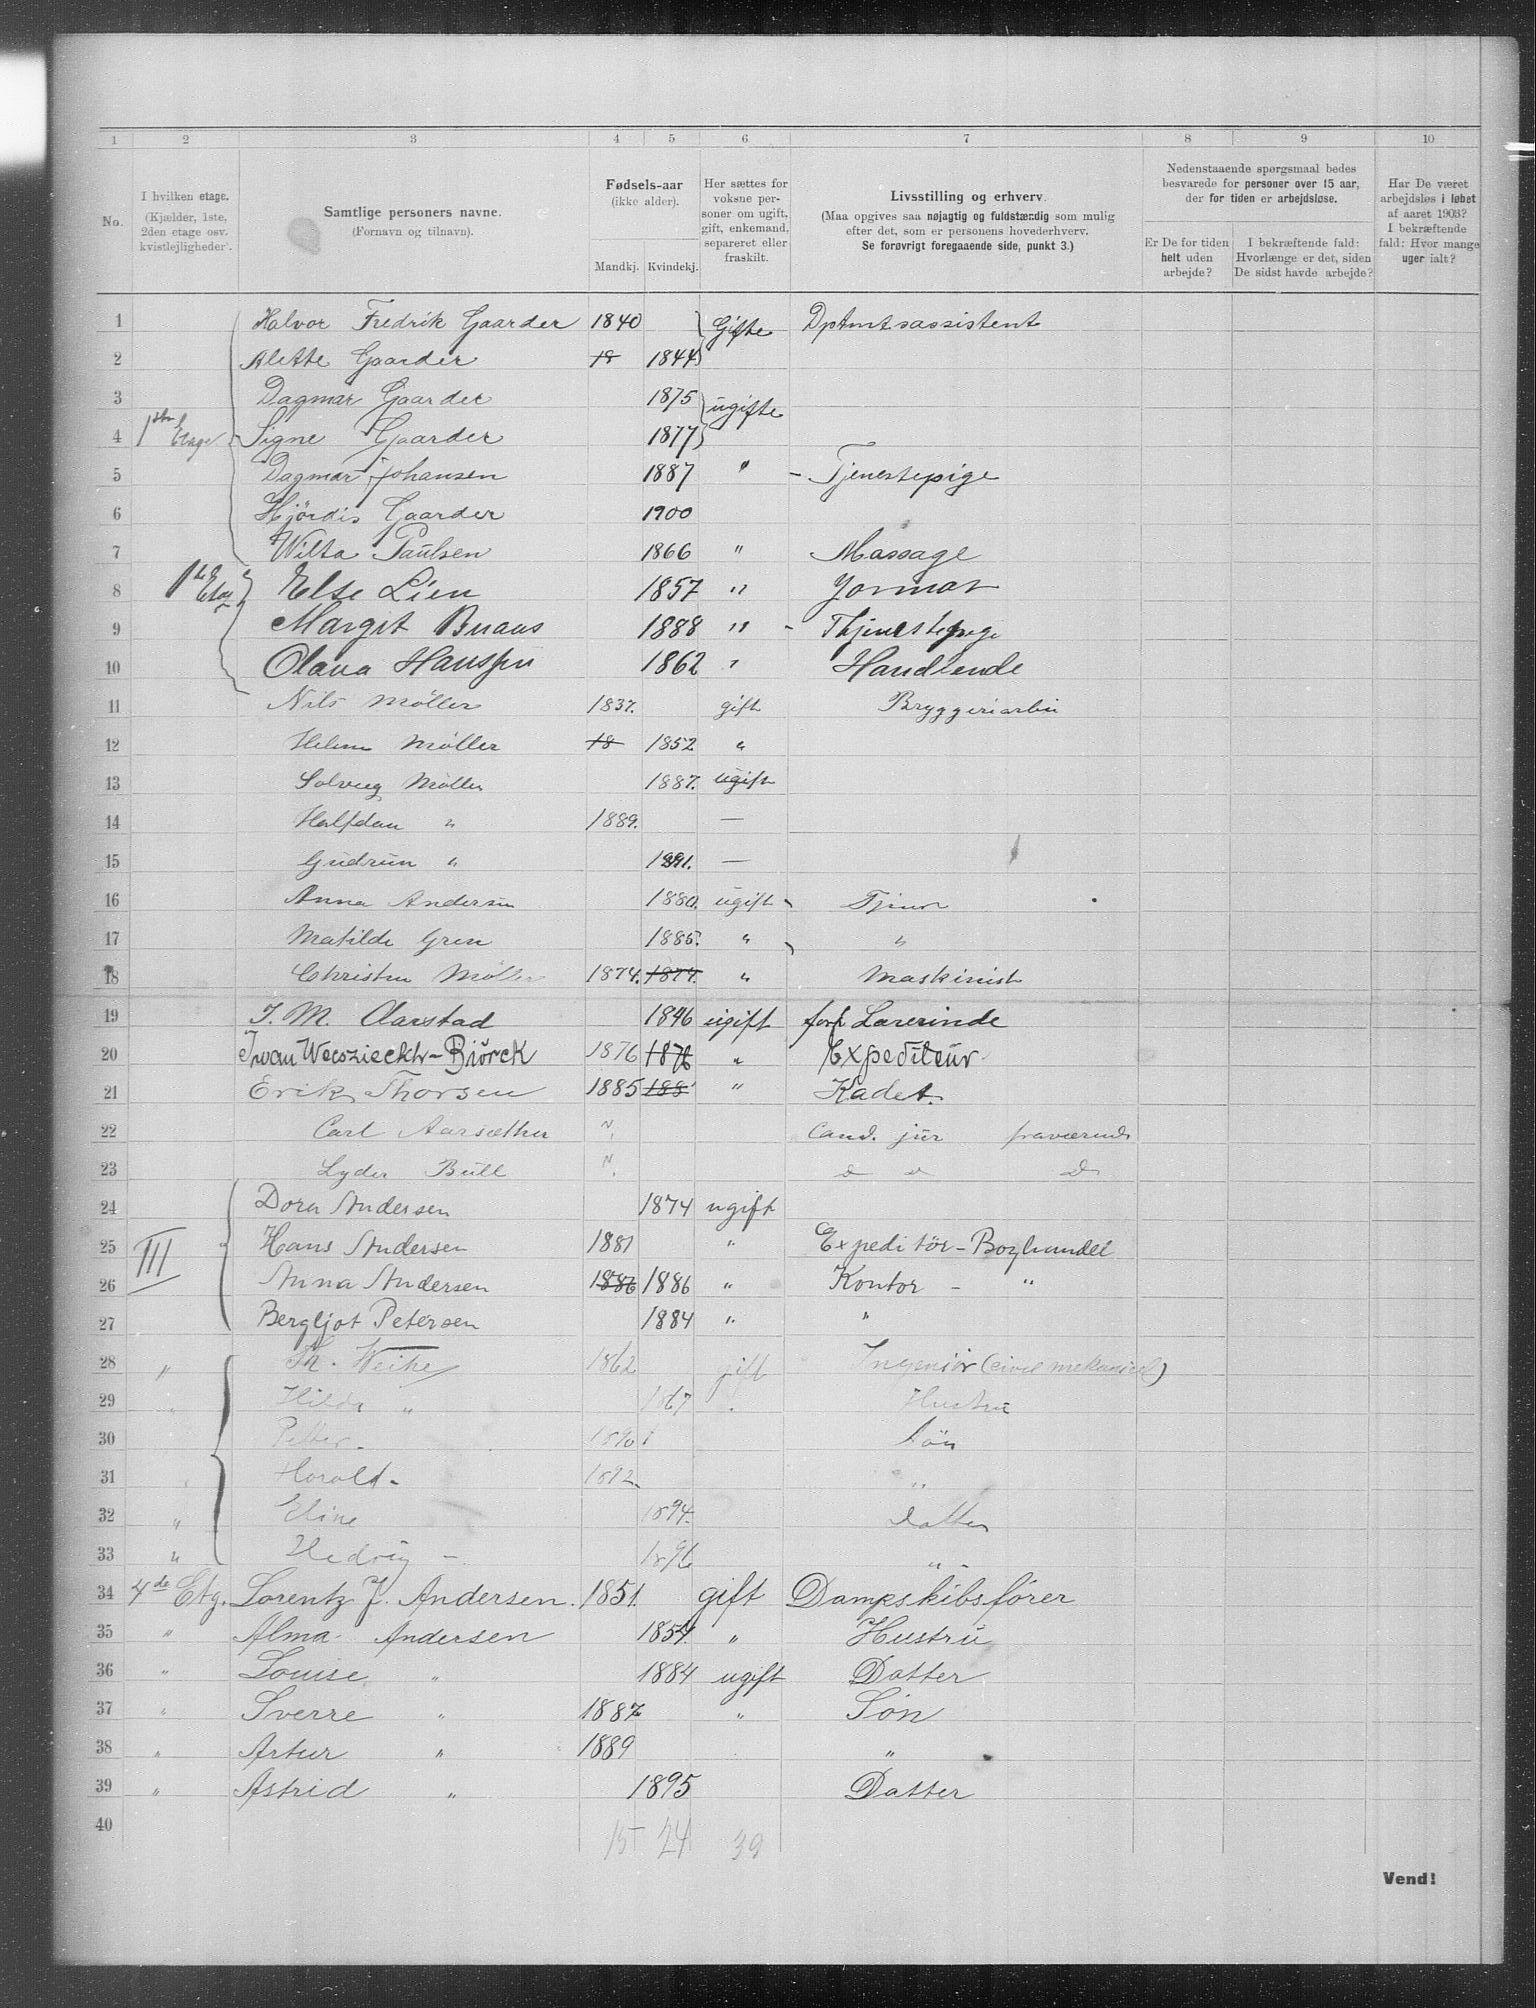 1 2 3 4 5 6 7 8 9 10
No.
I hvilken etage.
(Kjælder, 1ste,
2den etage osv.
kvistlejligheder).
Samtlige personers navne.
(Fornavn og tilnavn).
Fødsels-aar
(ikke alder).
Mandkj. Kvindekj.
Her sættes for
voksne per-
soner om ugift,
gift, enkemand,
separeret eller
fraskilt.
Livsstilling og erhverv.
(Maa opgives saa nøjagtig og fuldstændig som mulig
efter det, som er personens hovederhverv.
Se forøvrigt foregaaende side, punkt 3.)
Nedenstaaende spørgsmaal bedes
besvarede for personer over 15 aar,
der for tiden er arbejdsløse.
Er De for tiden
helt uden
arbejde?
I bekræftende fald:
Hvorlænge er det, siden
De sidst havde arbejde?
Har De været
arbejdsløs i løbet
af aaret 1903?
I bekræftende
fald: Hvor mange
uger ialt?
1 Halvor Fredrik Gaarder 1840 Gifte Dptmtsassistent
2 Alette Gaarder 18 1844
3 Dagmar Gaarder 1875 ugifte
4 1ste Etage Signe Gaarder 1877
5 Dagmar Johansen 1887 " - Tjenestepige
6 Hjördis Gaarder 1900
7 Wilta Paulsen 1866 " Massage
8 1ste Etag Else Lien 1857 " Jormor
9 Margit Buaas 1888 " - Thjenestepige
10 Olava Hanssen 1862 " Handlende
11 Nils Møller 1837. gift Bryggeriarbei
12 Helene Møller 18 1852 "
13 Solveig Møller 1887. ugift
14 Halfdan " 1889. —
15 Gudrun " 1891. —
16 Anna Andersen 1880. ugift Tjener
17 Matilde Gren 1885. " "
18 Christen Møller 1874. 1874. " Maskinist
19 J. M. Aarstad 1846 ugift forh Lærerinde
20 Iwan - Biörck 1876 1876 " Expediteur
21 Erik Thorsen 1885 188 " Kadet.
22 Carl Aarsæther N. Cand. jur fraværende
23 Lyder Bull N. D D D
24 Dora Andersen 1874 ugift
25 III Hans Andersen 1881 " Expeditör - Boghandel
26 Anna Andersen 1886 1886 " Kontor - "
27 Bergljot Petersen 1884 " "
28 " Th. 1862 gift Ingeniør (civil mekanisk)
29 " Hilda " 1867 " Hustru
30 Petter - 1890 Søn
31 Harald - 1892 "
32 " Eline 1894. Datter
33 " Hedvig - 1896 "
34 4de Etg. Lorentz J. Andersen. 1851. gift Dampskibsfører
35 " Alma Andersen 1854. " Hustru
36 " Louise " 1884 ugift Datter
37 " Sverre " 1887 " Søn
38 " Artur " 1889 "
39 " Astrid " 1895 Datter
40 15 24 39
Vend!